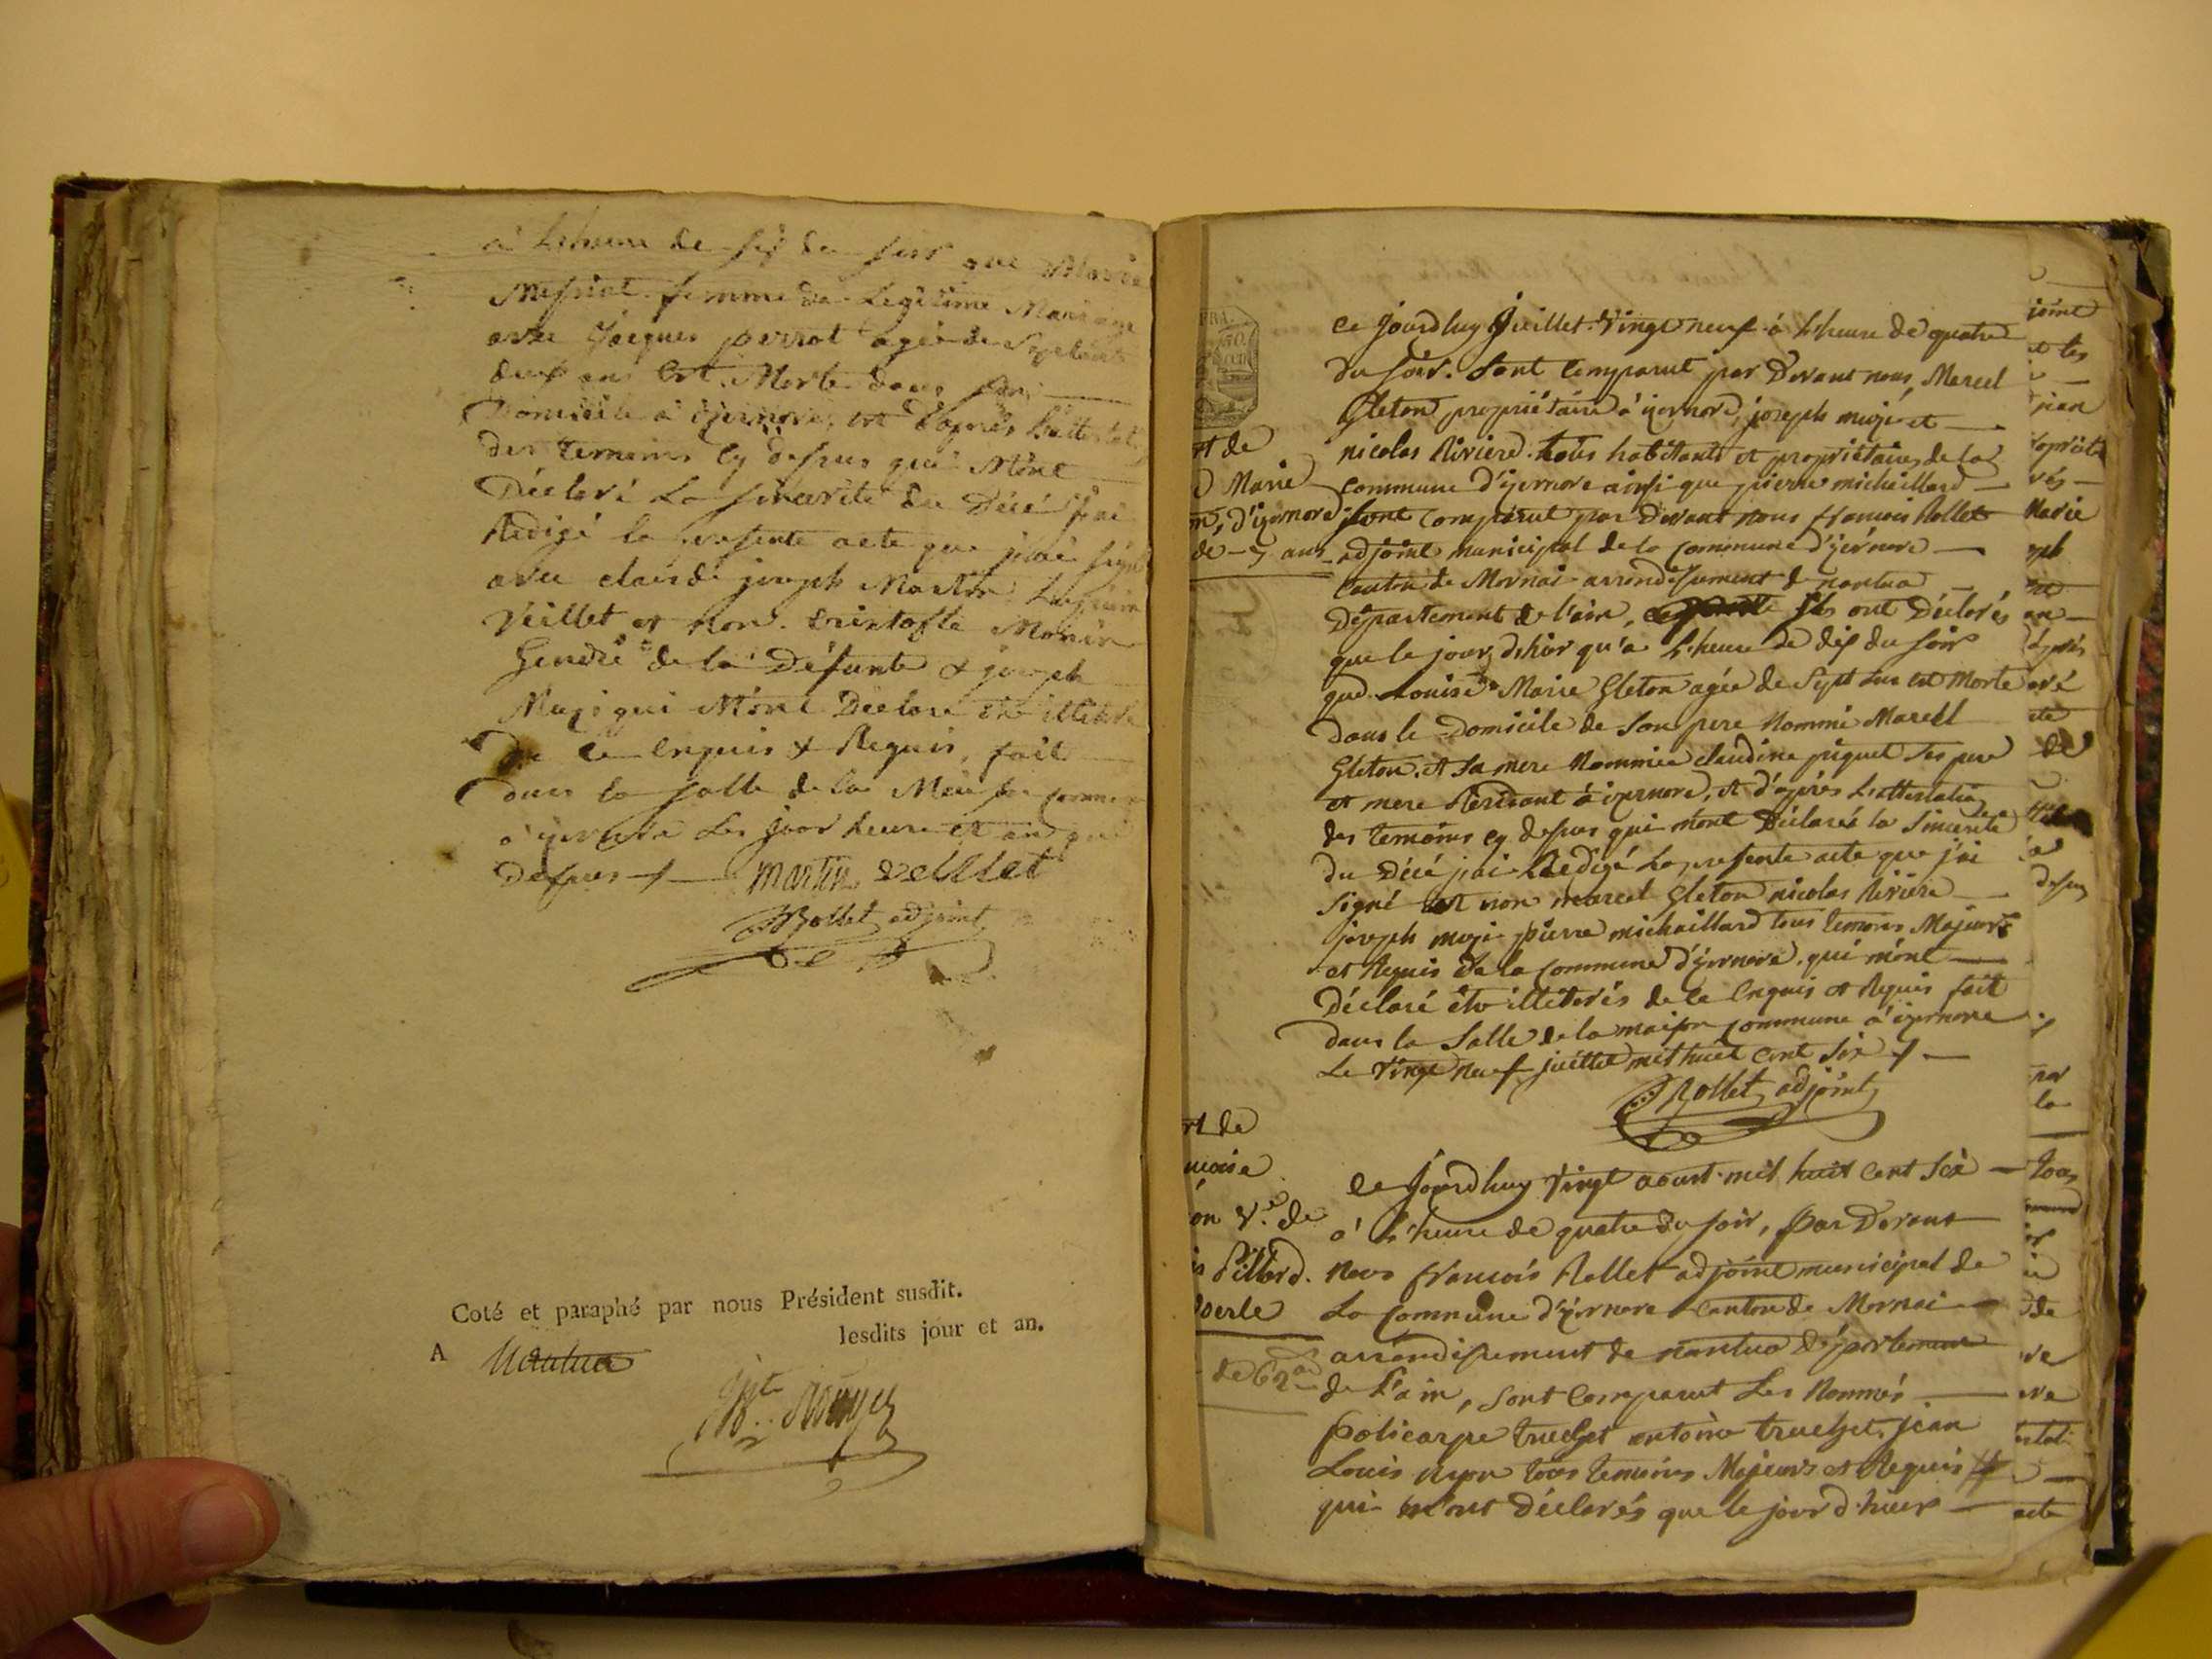 à Lheure de six du soir que Marie
Messiat femme de Legitime Mariage
avec Jacques perrot agée de Septante
deux ans Est Morte dans son
Domicile à izernore, et d'après Lattestat
des temoins Cy dessus qui Mont
Déclaré La sincerité du Décé J'ai
Redigé le presente acte que jai signé
avec claude joseph Martin
Veillet et non Cristofle Monin
Gendre de la Défunte & joseph
Mugi qui Mont Déclaré etre illitéré
De Ce Enquis & Requis, fait
dans la salle de la Maison Commune
a izernore Les jour heure et an que
Dessus
martin veillet
Rollet adjoint
Coté et paraphé par nous Président susdit.
A Nantua lesdits jour et an.
Ce Jourdhuy Juillet Vingt neuf à Lheure de quatre
du soir. Sont Comparut par Devant nous, Marcel
Gleton propriétaire à izernore, joseph mugi et
nicolas Riviere. tous habitants et propriétaires de la
Commune d'izernore ainsi que pierre michaillard
sont Comparut par Devant nous francois Rollet
adjoint municipal de la Commune d'izernore
Canton de Mornai arrondissement de nantua
Département de l'ain, ils ont Déclarés
que le jour d'hier qu'a L'heure de dix du soir
que Louise Marie Gleton agée de Sept ans est Morte
dans le Domicile de Son pere Nommé Marcel
Gleton, et Sa mere Nommée claudine piquet Ses pere
et mere Résidant à izernore, et d'après L'attestation
des temoins cy dessus qui m'ont Déclarés la Sincerité
du Décé j'ai Redigé La presente acte que j'ai
Signé et non marcel Gleton nicolas Riviere
joseph mugi pierre michaillard tous temoins Majeurs
et Requis De la Commune d'izernore, qui m'ont
Déclaré être illitérés de ce Enquis et Requis fait
dans la Salle de la maison Commune à izernore
Le Vingt neuf juillet mil huit cent Six
Rollet adjoint
rt de
Marie
d'izernore
de 7 ans
rt de
ncoise
on Ve. de
is Pillard.
de 62 ans
Ce Jourdhuy Vingt aoust mil huit Cent Six
à L'heure de quatre du soir, par Devant
Nous francois Rollet adjoint municipal de
La Commune d'izernore Canton de Mornai
arrondissement de nantua département
de L'ain, sont Comparut Les Nommés
policarpe truchet antoine truchet, jean
Louis nyon tous temoins Majeurs et Requis
qui m'ont Déclarés que le jour d'hier
joint
et les
jean
Marie
de
par
la
tous
de
acte